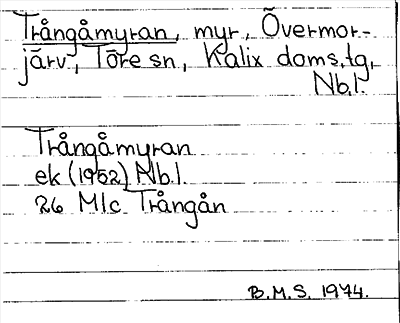 Trångåmyran, myr, Övermor-
järv, Töre sn, Kalix doms.tg,
Nb.l.
Trångåmyran
ek (1952) Nb.l.
26 M1c Trångån
B.M.S. 1974.